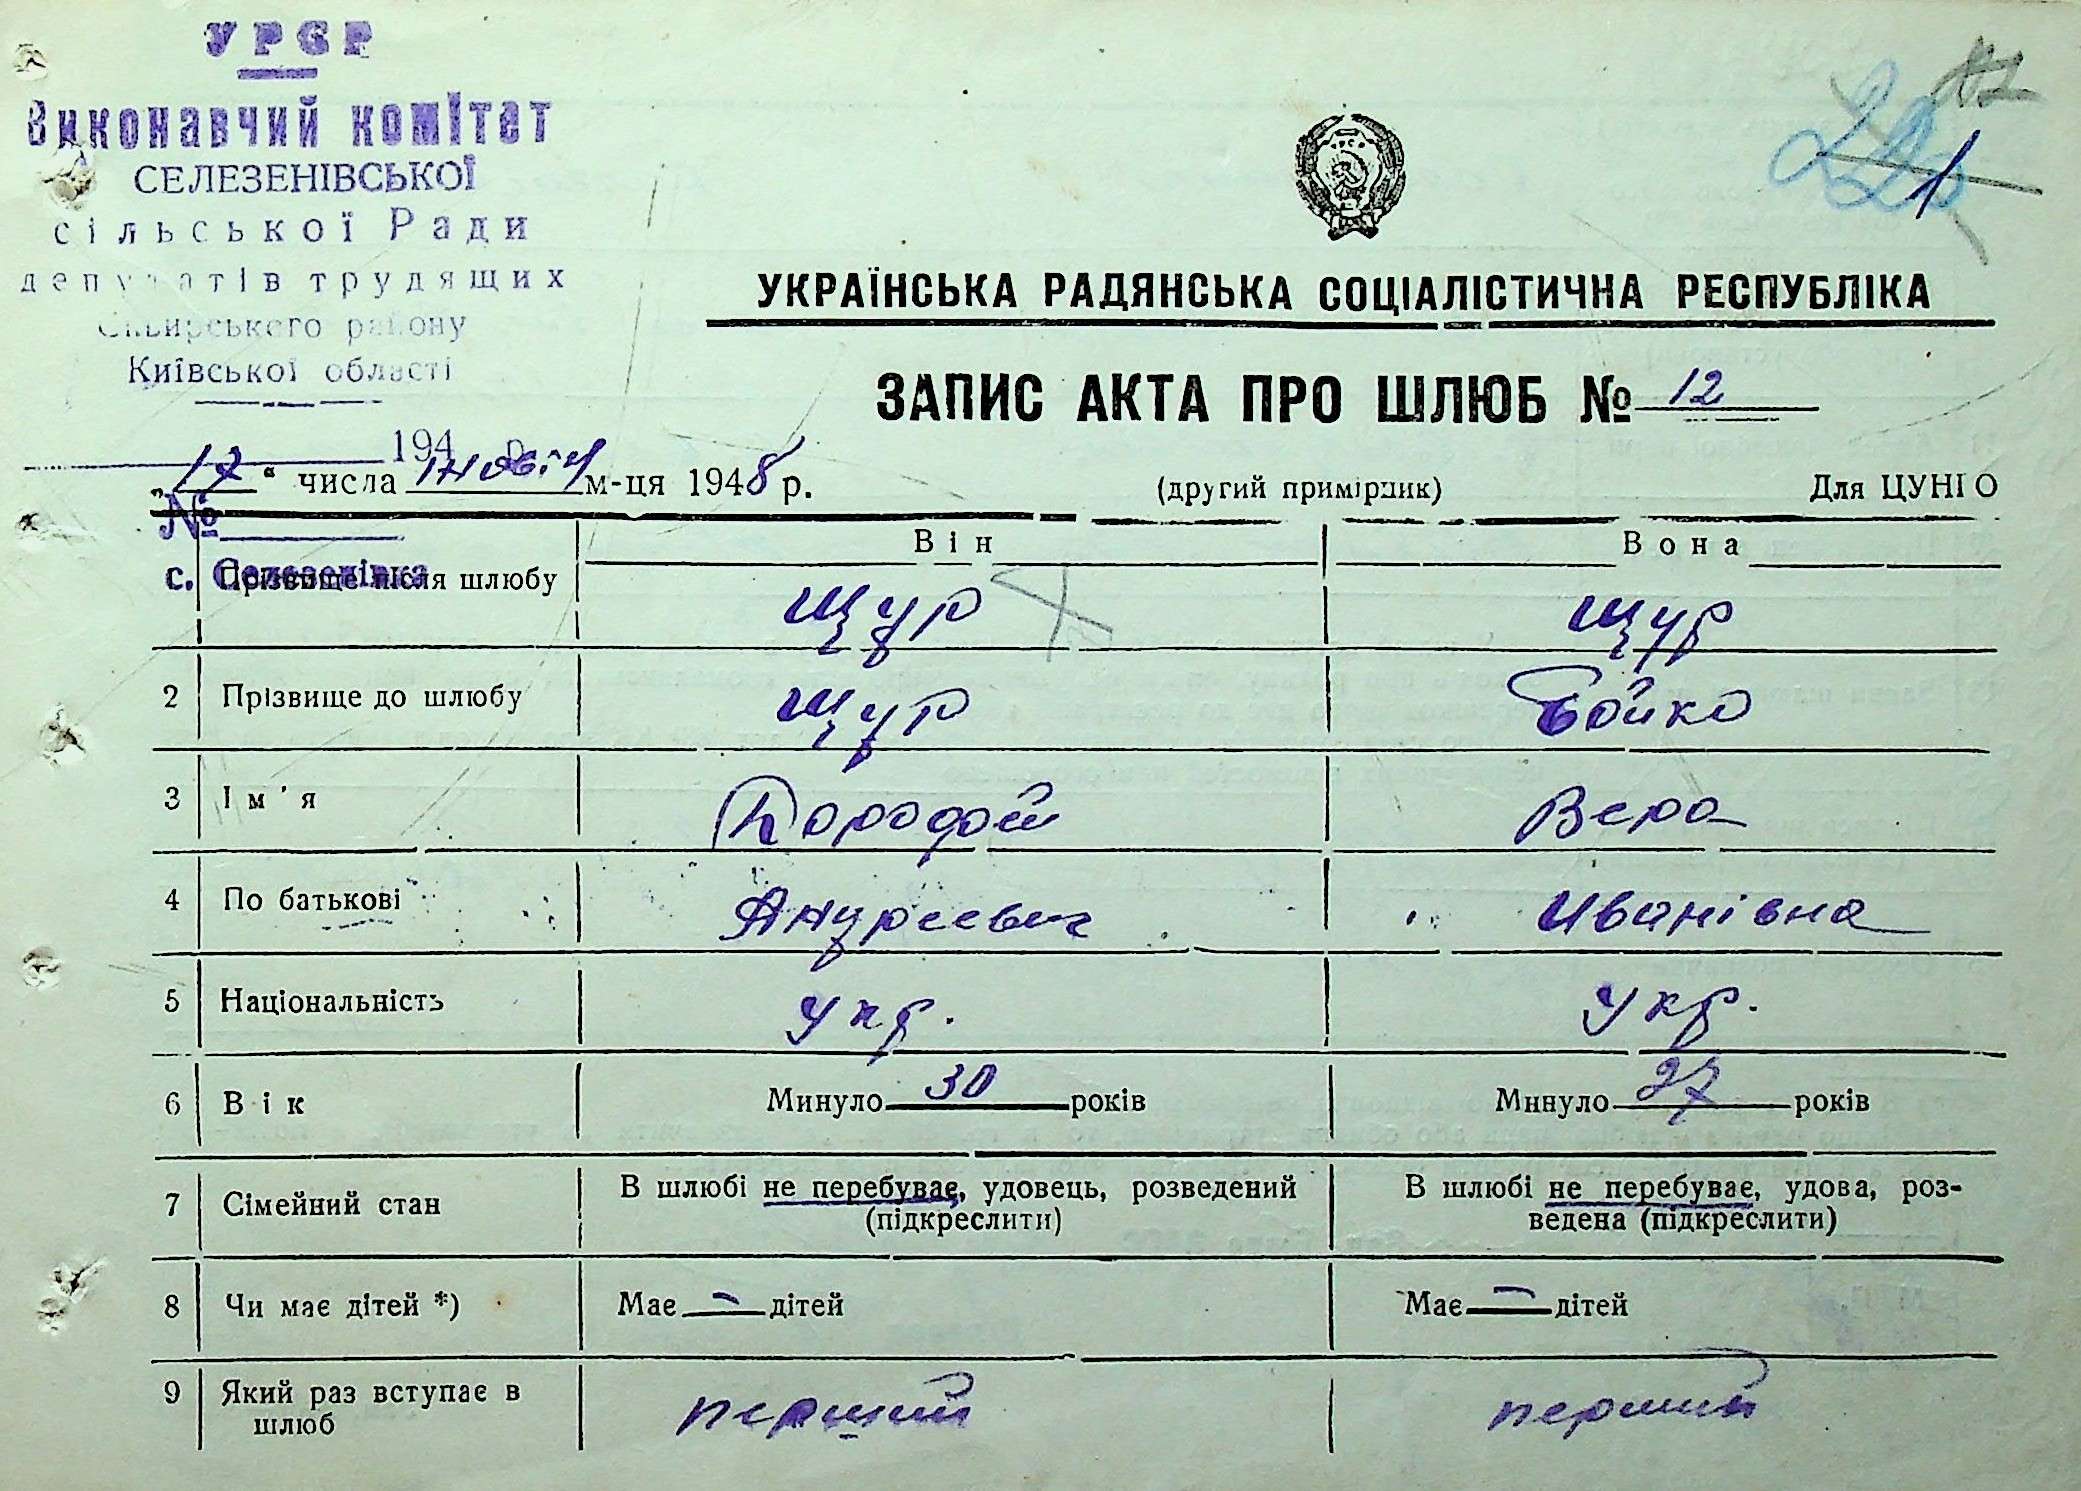 УРСР
Виконавчий комітет
СЕЛЕЗЕНІВСЬКОЇ
сільської Ради
депутатів трудящих
Сквирського району
Київської області
194
№
с. Селезенівка
1
УКРАЇНСЬКА РАДЯНСЬКА СОЦІАЛІСТИЧНА РЕСПУБЛІКА
ЗАПИС АКТА ПРО ШЛЮБ № 12
„17“ числа м-ця 1948 р. (другий примірник) Для ЦУНГО
Він Вона
Прізвище після шлюбу Щур Щур
2 Прізвище до шлюбу Щур Бойко
3 Ім'я Дорофей Вера
4 По батькові Андреевич Иванівна
5 Національність Укр. Укр.
6 Вік Минуло 30 років Минуло 27 років
7 Сімейний стан В шлюбі не перебуває, удовець, розведений (підкреслити) В шлюбі не перебуває, удова, роз-
ведена (підкреслити)
8 Чи має дітей *) Має — дітей Має — дітей
9 Який раз вступає в шлюб перший перший